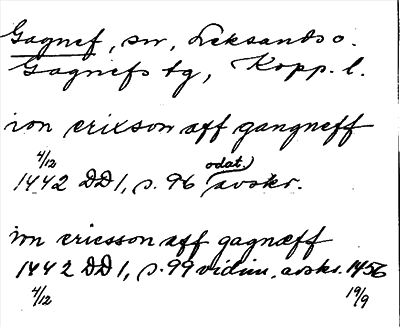 Gagnef, sn, Leksands o.
Gagnefs tg, Kopp. l.
ion erikson aff gangneff
4/12 odat.)
1442 DD 1, s. 96 avskr.
ion ericsson aff gagnæff
1442 DD 1, s. 99 vidim. avskr. 1456
4/12 19/9